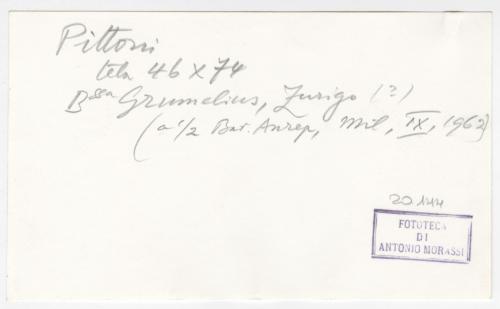 Pittoni
tela 46 x 74
B.ssa Grumelius, Zurigo (?)
(a ½ Bar. Anrep, Mil, IX, 1962)
20.144
FOTOTECA
DI
ANTONIO MORASSI